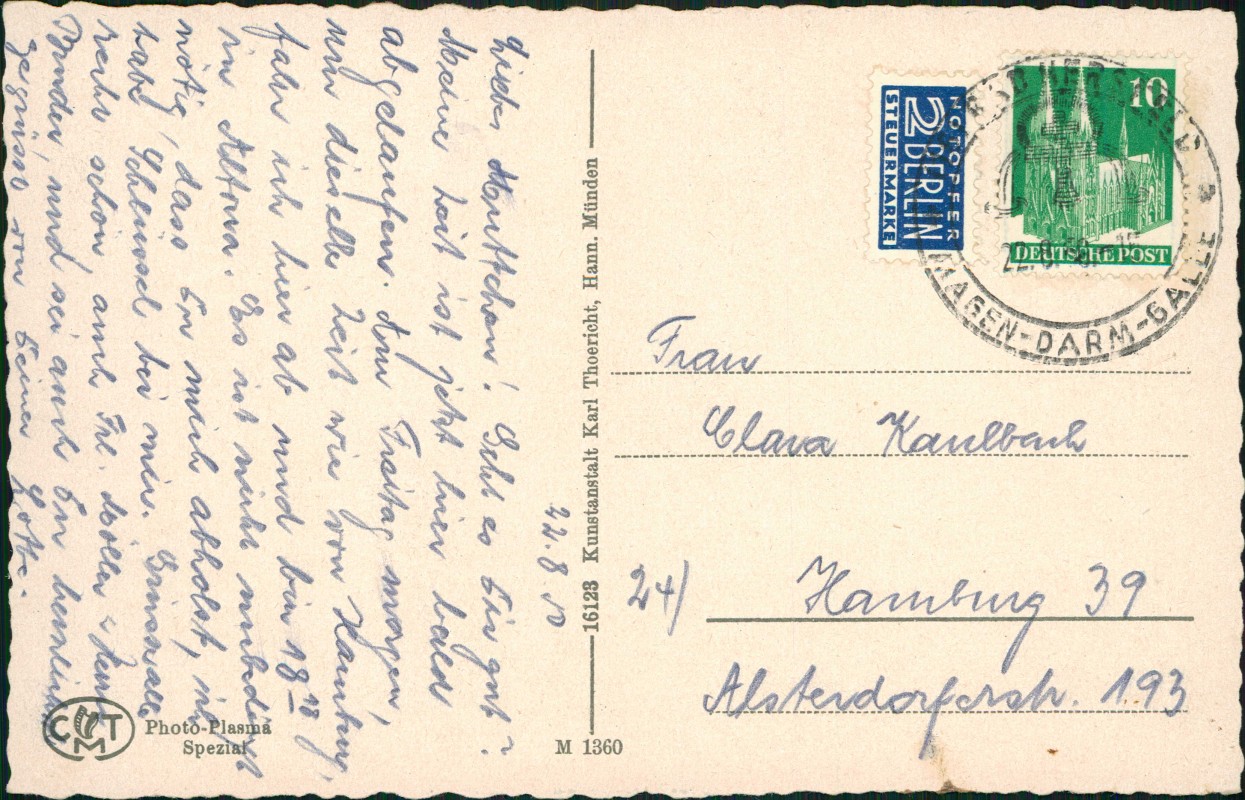 22.8.50
Liebes Muttchen! Geht es Dir gut?
Meine Zeit ist jetzt hier bald
abgelaufen. Am Freitag morgen,
um dieselbe Zeit wie von Hamburg,
fahr ich hier ab und bin 18
in Altona. Es ist nicht unbedingt
nötig, dass Du mich abholst, ich
habe Schlüssel bei mir.
reichs schon auch Frl. Möller
Bruder, und sei auch Du herzlichst
gegrüsst von Deiner Lotte.
CMT
Photo-Plasma
Spezial
M 1360
16123 Kunstanstalt Karl Thoericht, Hann. Münden
NOTOPFER
2 BERLIN
STEUERMARKE
10
DEUTSCHE POST
BAD HERSFELD
a
22.8.50.-16
MAGEN-DARM-GALLE
Frau
Clara Kaulbach
24)
Hamburg 39
Alsterdorferstr. 193